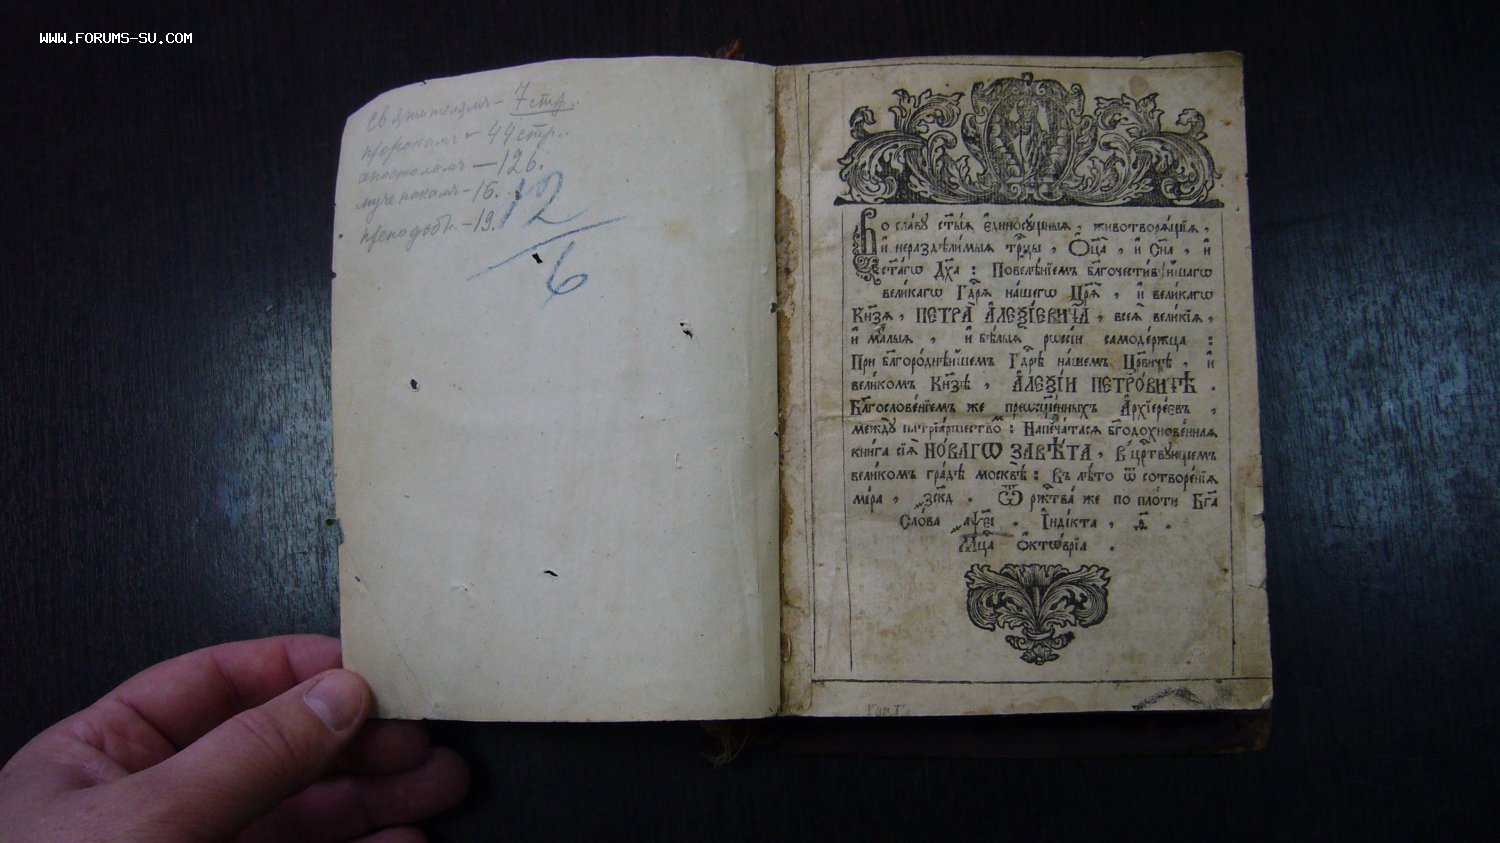 WWW.FORUMS-SU.COM
Святителямъ – 7 стр.
пророкамъ – 44 стр.
апостоламъ – 126.
мученикамъ – 16.
преподобъ – 19.
12
6
Во сла́вꙋ ст҃ы́ѧ є҆диносꙋ́щныѧ, животворѧ́щїѧ,
и҆ нераздѣли́мыѧ трⷪ҇цы, Ѻ҆ц҃а̀, и҆ Сн҃а, и҆
ст҃а́гѡ Дх҃а: Повелѣ́нїемъ бл҃гочести́вѣйшагѡ
вели́кагѡ Гдⷭ҇рѧ на́шегѡ Цр҃ѧ̀, и҆ вели́кагѡ
Кн҃зѧ, ПЕТРА̀ А҆ЛЕѮІ́ЕВИЧА, всеѧ̀ вели́кїѧ,
и҆ ма́лыѧ, и҆ бѣ́лыѧ рѡссі́и самоде́ржца:
При бл҃горо́днѣйшемъ Гдⷭ҇рѣ на́шемъ Цр҃ви́чѣ, и҆
вели́комъ Кн҃зѣ, А҆ЛЕѮІ́И ПЕТРО́ВИЧѢ.
Бл҃гослове́нїемъ же преѡсщ҃е́нныхъ А҆рхїере́євъ,
междꙋ̀ патрїа́ршествомъ: Напеча́тасѧ бг҃одохнове́ннаѧ
кни́га сїѧ̀ НО́ВАГѠ ЗАВѢ́ТА, в̾ црⷭ҇твꙋющемъ
вели́комъ гра́дѣ москвѣ̀: Въ лѣ́то ѿ сотворе́нїѧ
мі́ра, ҂зс҃кд. Ѿ ржⷭ҇тва́ же по пло́ти Бг҃а
Сло́ва ҂аѱ҃єі. І҆ндї́кта, ѳ҃.
Мцⷭ҇а ѻ҆ктѡ́врїа.